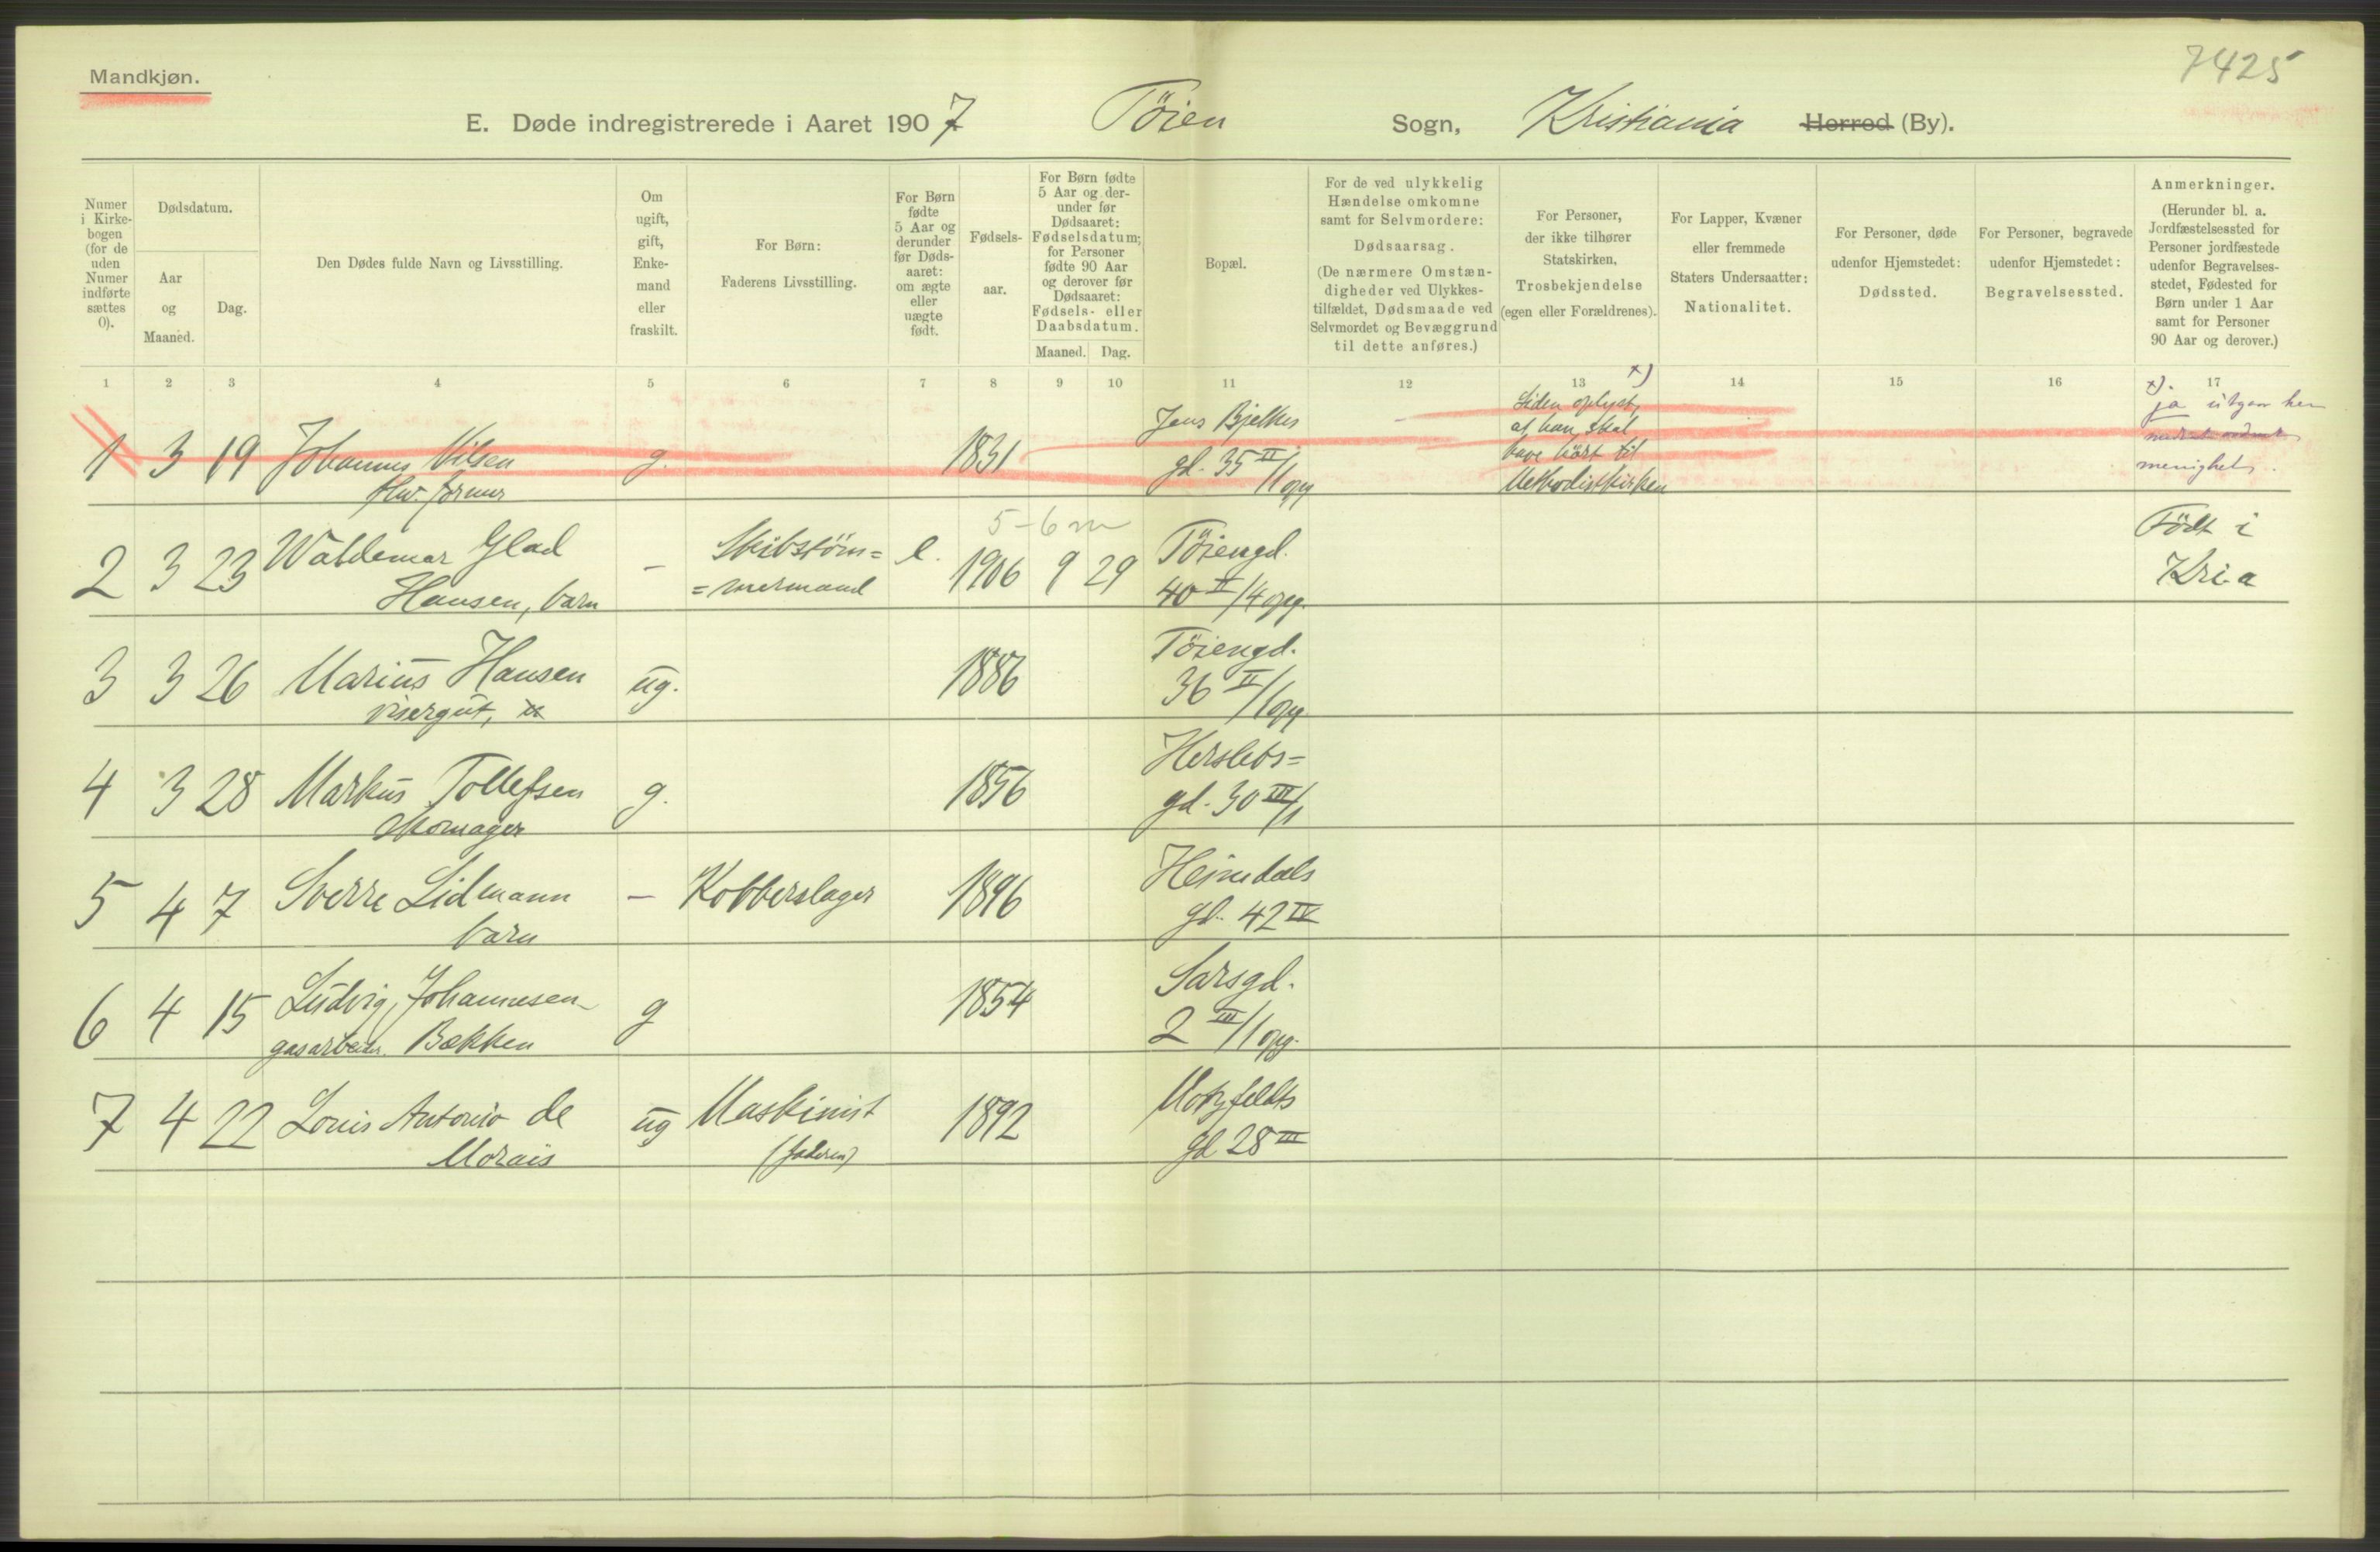 7425
Mandkjøn.
E. Døde indregistrerede i Aaret 1907 Töien Sogn, Kristiania Herred (By).
Numer i Kirke-bogen (for de uden Numer indførte sættes 0).
Dødsdatum.
Aar og Maaned.
Dag.
Den Dødes fulde Navn og Livsstilling.
Om ugift, gift, Enke-mand eller fraskilt.
For Børn:
Faderens Livsstilling.
For Børn fødte 5 Aar og derunder før Døds-aaret: om ægte eller uægte født.
Fødsels-aar.
For Børn fødte 5 Aar og der-under før Dødsaaret: Fødselsdatum; for Personer fødte 90 Aar og derover før Dødsaaret: Fødsels- eller Daabsdatum.
Maaned. Dag.
Bopæl.
For de ved ulykkelig Hændelse omkomne samt for Selvmordere:
Dødsaarsag.
(De nærmere Omstæn-digheder ved Ulykkes-tilfældet, Dødsmaade ved Selvmordet og Bevæggrund til dette anføres.)
For Personer, der ikke tilhører Statskirken, Trosbekjendelse (egen eller Forældrenes).
For Lapper, Kvæner eller fremmede Staters Undersaatter:
Nationalitet.
For Personer, døde udenfor Hjemstedet:
Dødssted.
For Personer, begravede udenfor Hjemstedet:
Begravelsessted.
Anmerkninger.
(Herunder bl. a. Jordfæstelsessted for Personer jordfæstede udenfor Begravelses-stedet, Fødested for Børn under 1 Aar samt for Personer 90 Aar og derover.)
1 2 3 4 5 6 7 8 9 10 11 12 13 14 15 16 17
1 3 19 Johannes Nilsen g. 1831 Jens Bjelkes gd. 35 II/1 opg
x) Siden oplyst, at han skal have hört til Methodistkirken
x). ja utgaar her
menighet.
2 3 23 Waldemar Glad Hansen, barn – Skibstöm= =mermand e. 1906 9 29 Töiengd. 40 II/4 opg. Född i Kri.a
5-6 m
3 3 26 Marius Hansen visergut, ug. 1886 Töiengd. 36 II/1 opg
4 3 28 Markus Tollefsen Skomager g. 1856 Herslebs= gd. 30 III/1
5 4 7 Sverre Lidmann barn – Kobberslager 1896 Heimdals gd. 42 IV
6 4 15 Ludvig Johannesen Bækken gasarbeider. g 1854 Sarsgd. 2 III/1 opg.
7 4 22 Louis Antonio de Morais ug Maskinist (faderen) 1892 Motzfeldts gd 28 III